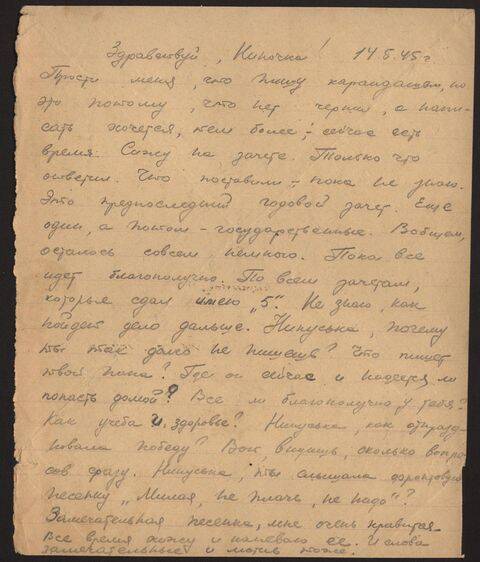 Здравствуй, Ниночка! 14.5.45 г
Прости меня, что пишу карандашом, но
это потому, что нет чернил, а напи-
сать хочется, тем более, - сейчас есть
время. Сижу на зачете. Только что
ответил. Что поставили - пока не знаю.
Это предпоследний годовой зачет. Еще
один, а потом - государственные. Вобщем,
осталось совсем немного. Пока все
идет благополучно. По всем зачетам,
которые сдал имею „5“. Не знаю, как
пойдет дело дальше. Нинуська, почему
ты так долго не пишешь? Что пишет
твой папа? Где он сейчас и надеется ли
попасть домой? Все ли благополучно у тебя?
Как учеба и здоровье? Нинуська, как отпразд-
новала победу? Вот, видишь, сколько вопро-
сов сразу. Нинуська, ты слышала фронтовую
песенку „Милая, не плачь, не надо“?
Замечательная песенка, мне очень нравится.
Все время хожу и напеваю ее. И слова
замечательные и мотив тоже.